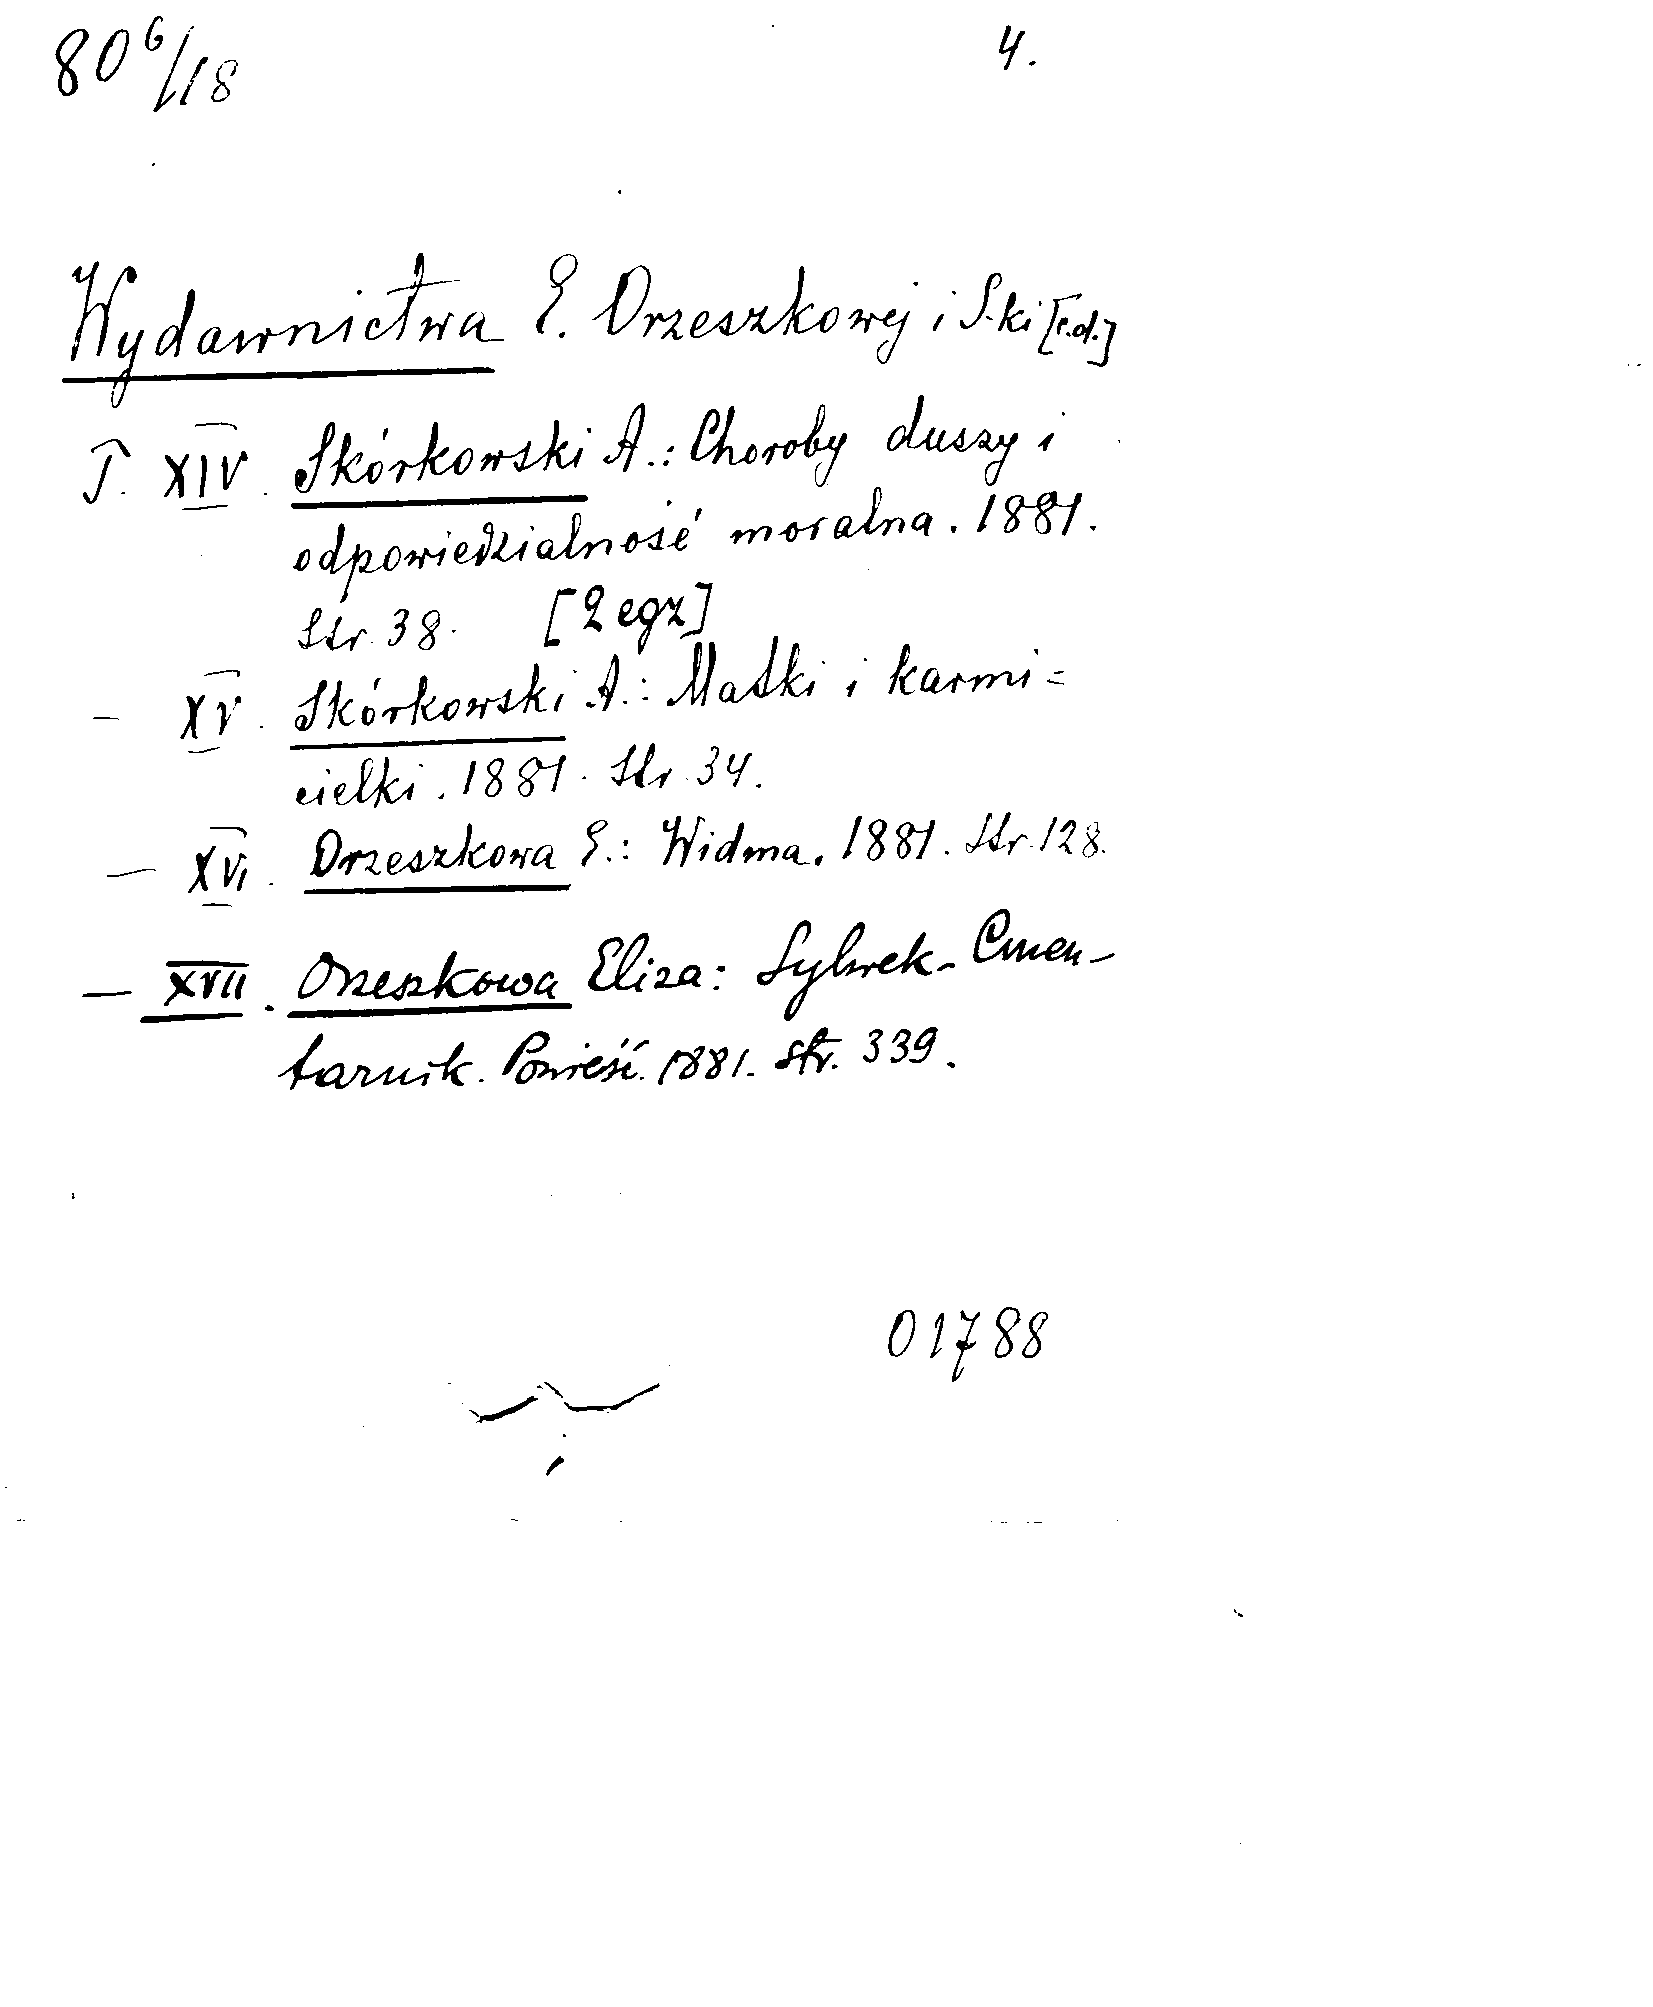 80⁶/18 4.
Wydawnictwa E. Orzeszkowej i S-ki [c.d.]
T. XIV. Skórkowski A.: Choroby duszy i
odpowiedzialność moralna. 1881.
Str. 38. [2 egz]
— XV. Skórkowski A.: Matki i karmi=
cielki. 1881. Str. 34.
— XVI. Orzeszkowa E.: Widma. 1881. Str. 128.
— XVII. Orzeszkowa Eliza: Sylwek-Cmen-
tarnik. Powieść. 1881. Str. 339.
01788